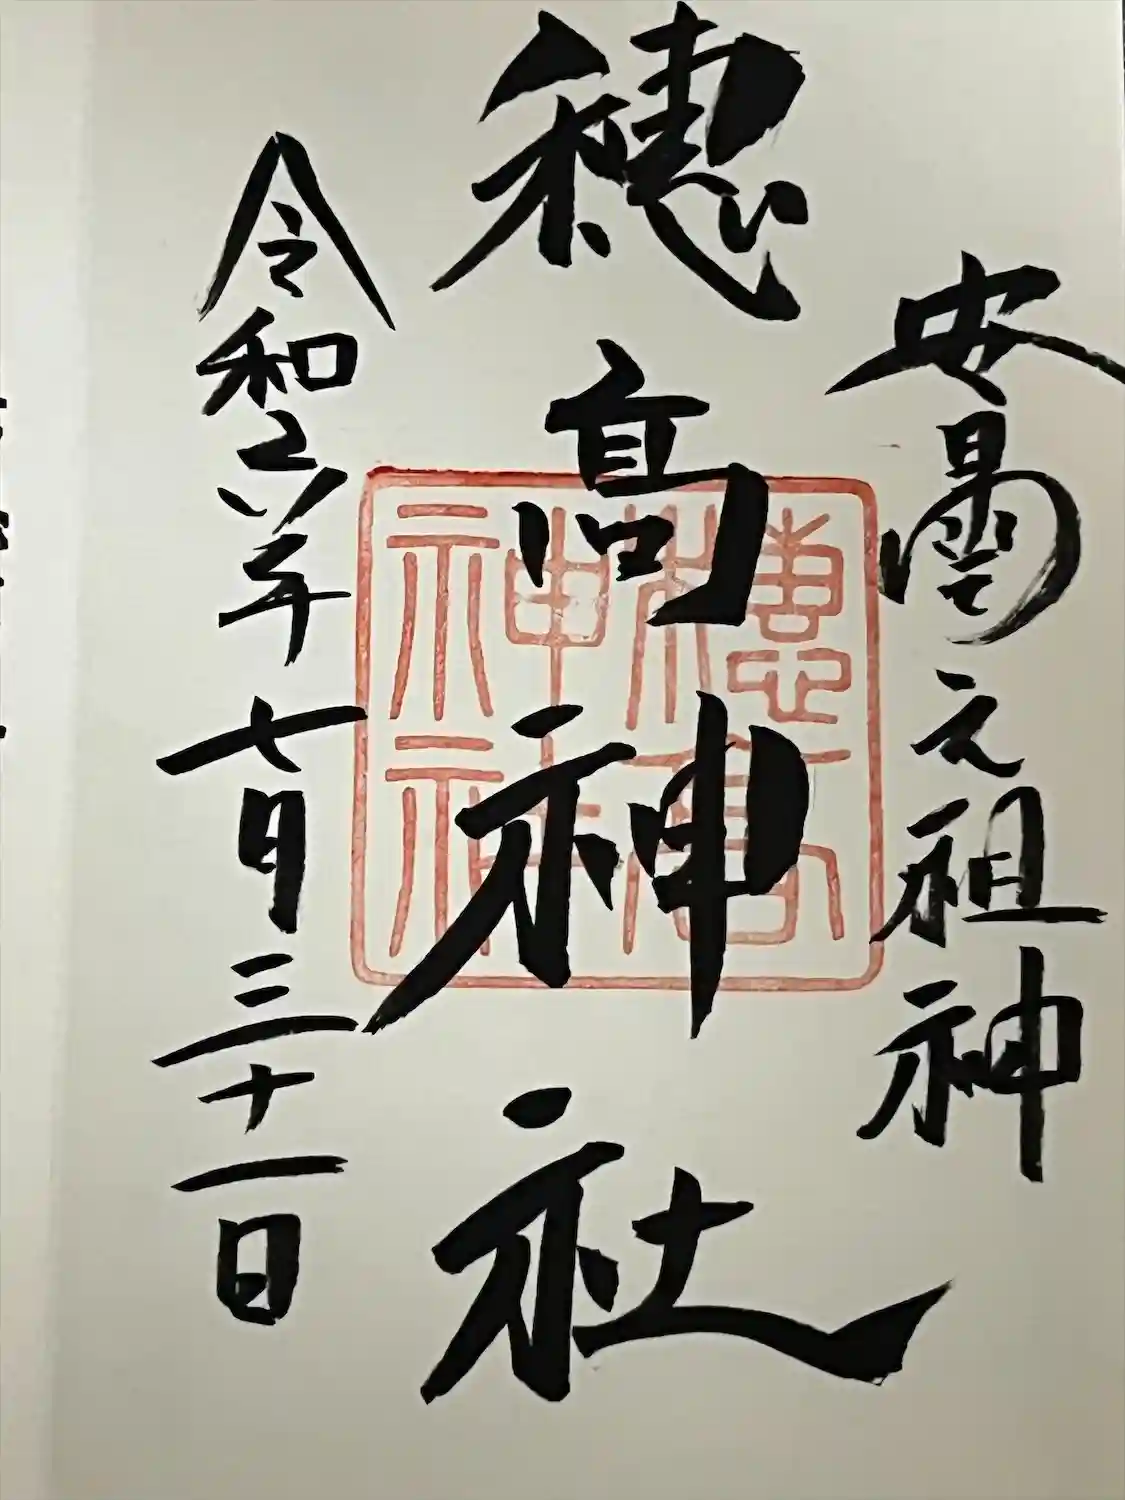 安曇元祖神
穂高神社
穂高
神社
令和六年七月三十一日